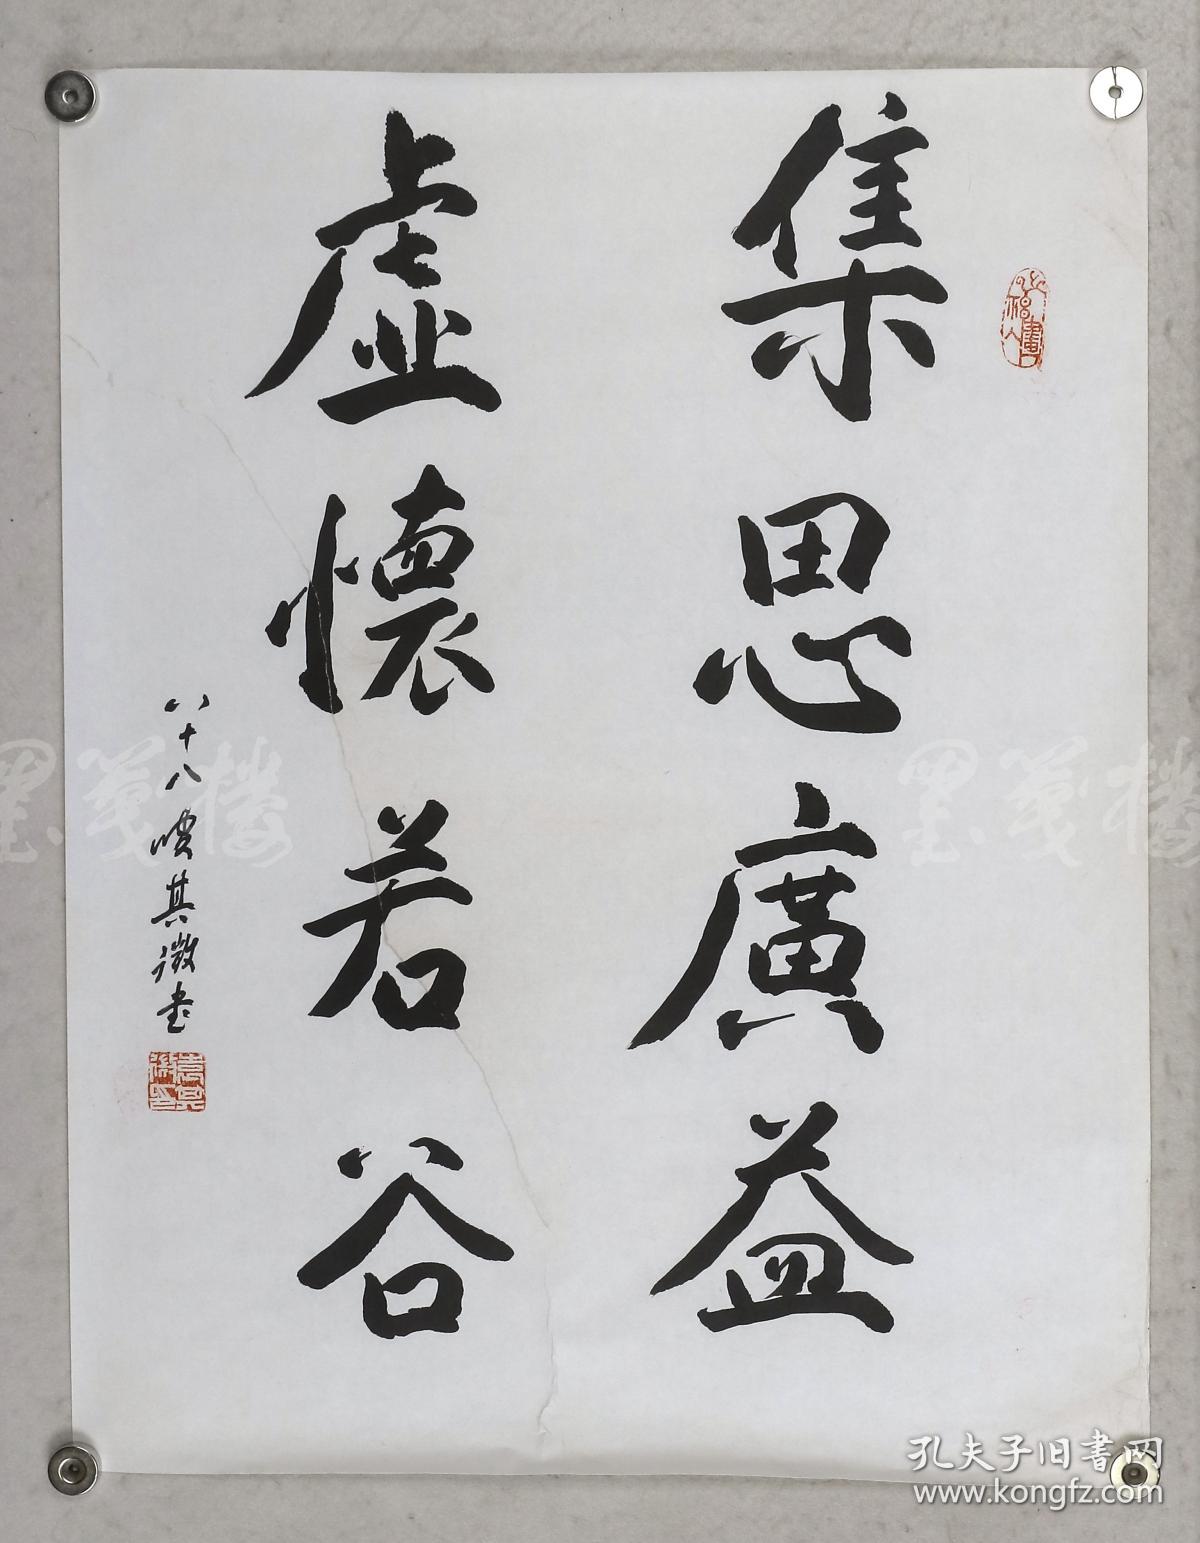 集思廣益
虛懷若谷
八十八叟其微書
墨笺楼
墨笺楼
孔夫子旧書网
www.kongfz.com